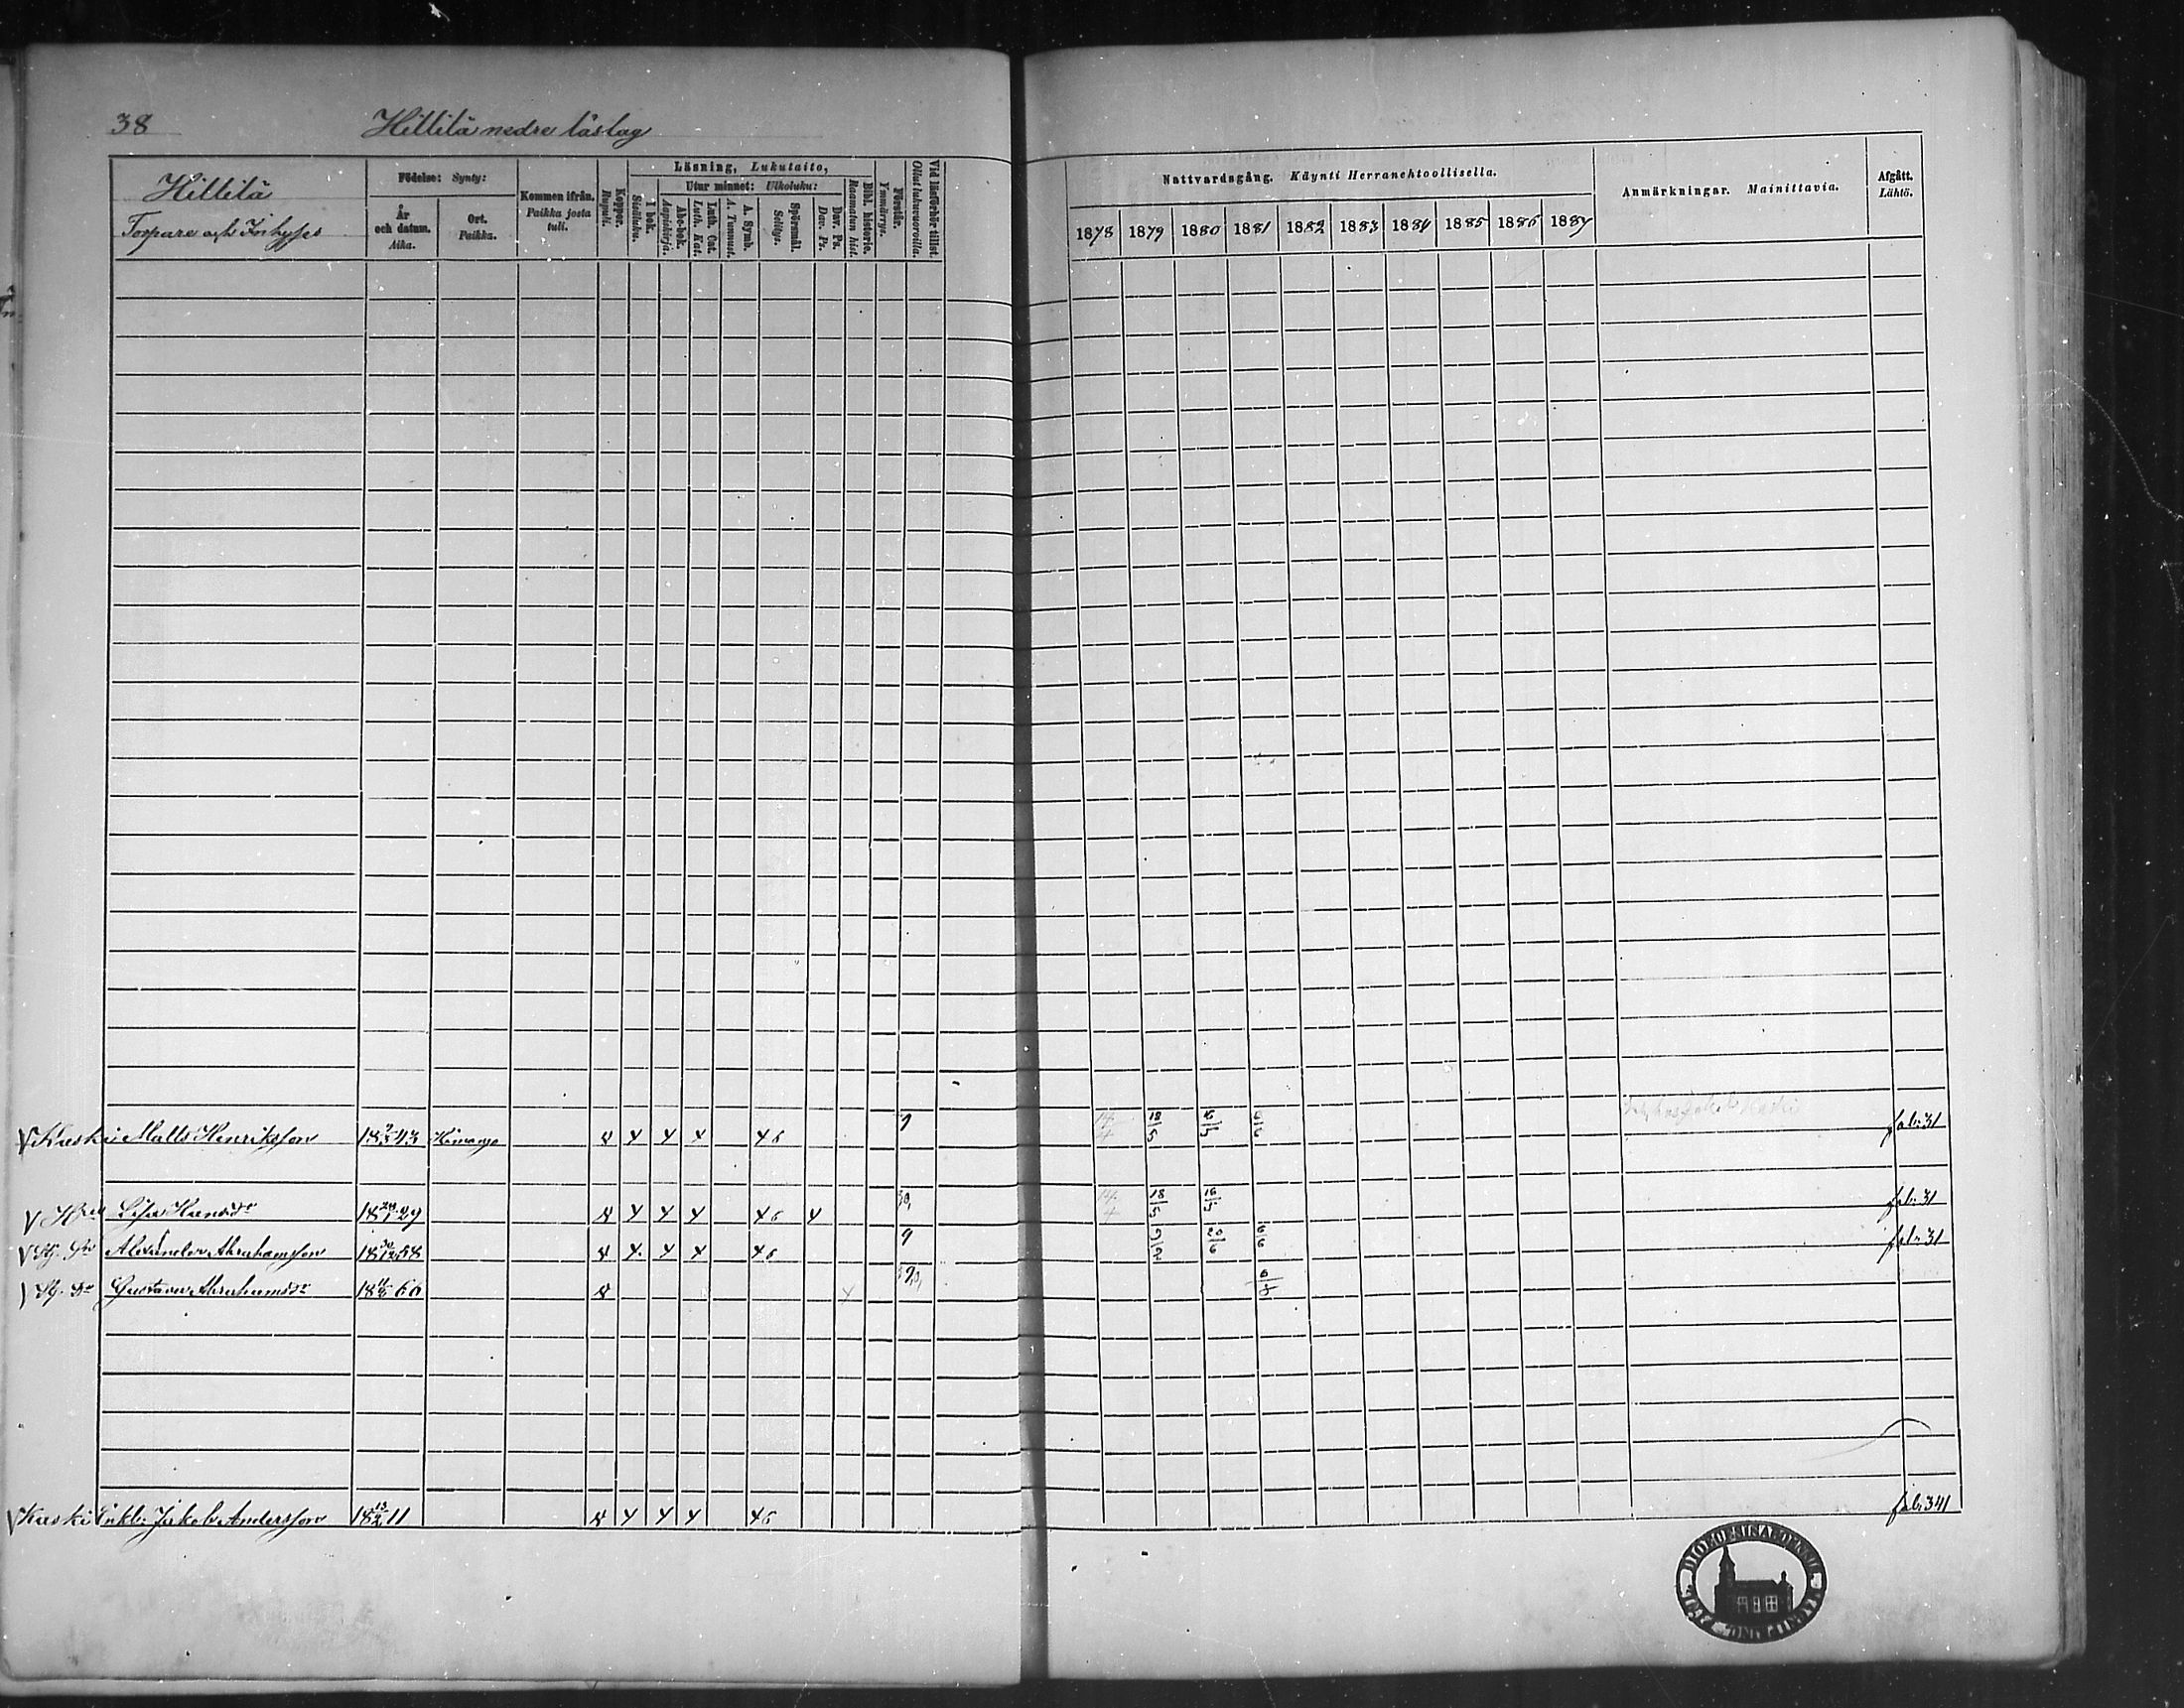 38
Hillilä nedre läslag
Hillilä
Torpare och Inhyses
Födelse: Synty:
År och datum. Aika.
Ort. Paikka.
Kommen ifrån. Paikka josta tuli.
Koppor. Rupuli.
Läsning, Lukutaito,
I bok. Sisäluku.
Utur minnet: Ulkoluku:
Abc-bok. Aapiskirja.
Luth. Cat. Luth. Kat.
A. Symb. A. Tunnust.
Spörsmål. Selitys.
Dav. Ps. Dav. Ps.
Bibl. historie. Raamatun hist.
Förstår. Ymmärrys.
Vid läsförhör tillst. Ollut lukuvuoroilla.
Nattvardsgång. Käynti Herranehtoollisella.
1878 1879 1880 1881 1882 1883 1884 1885 1886 1887
Anmärkningar. Mainittavia.
Afgått. Lähtö.
Kaski Matts Henriksson 43 Himango 4 4 4 46 9 18/5 16/5 6/6 fol: 31
Lisa Hansdr 18 29 4 4 4 46 4 18/5 16/5 fol: 31
Alexander Abrahamsson 18 30/12 58 4 4 4 46 9 20/6 6/6 fol: 31
Gustava Abrahamsdr 18 66
Kaski Enkl: Jakob Andersson 18 13/2 11 4 4 4 46 fol: 341